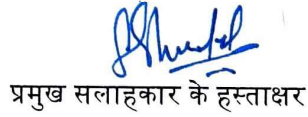 प्रमुख सलाहकार के हस्ताक्षर